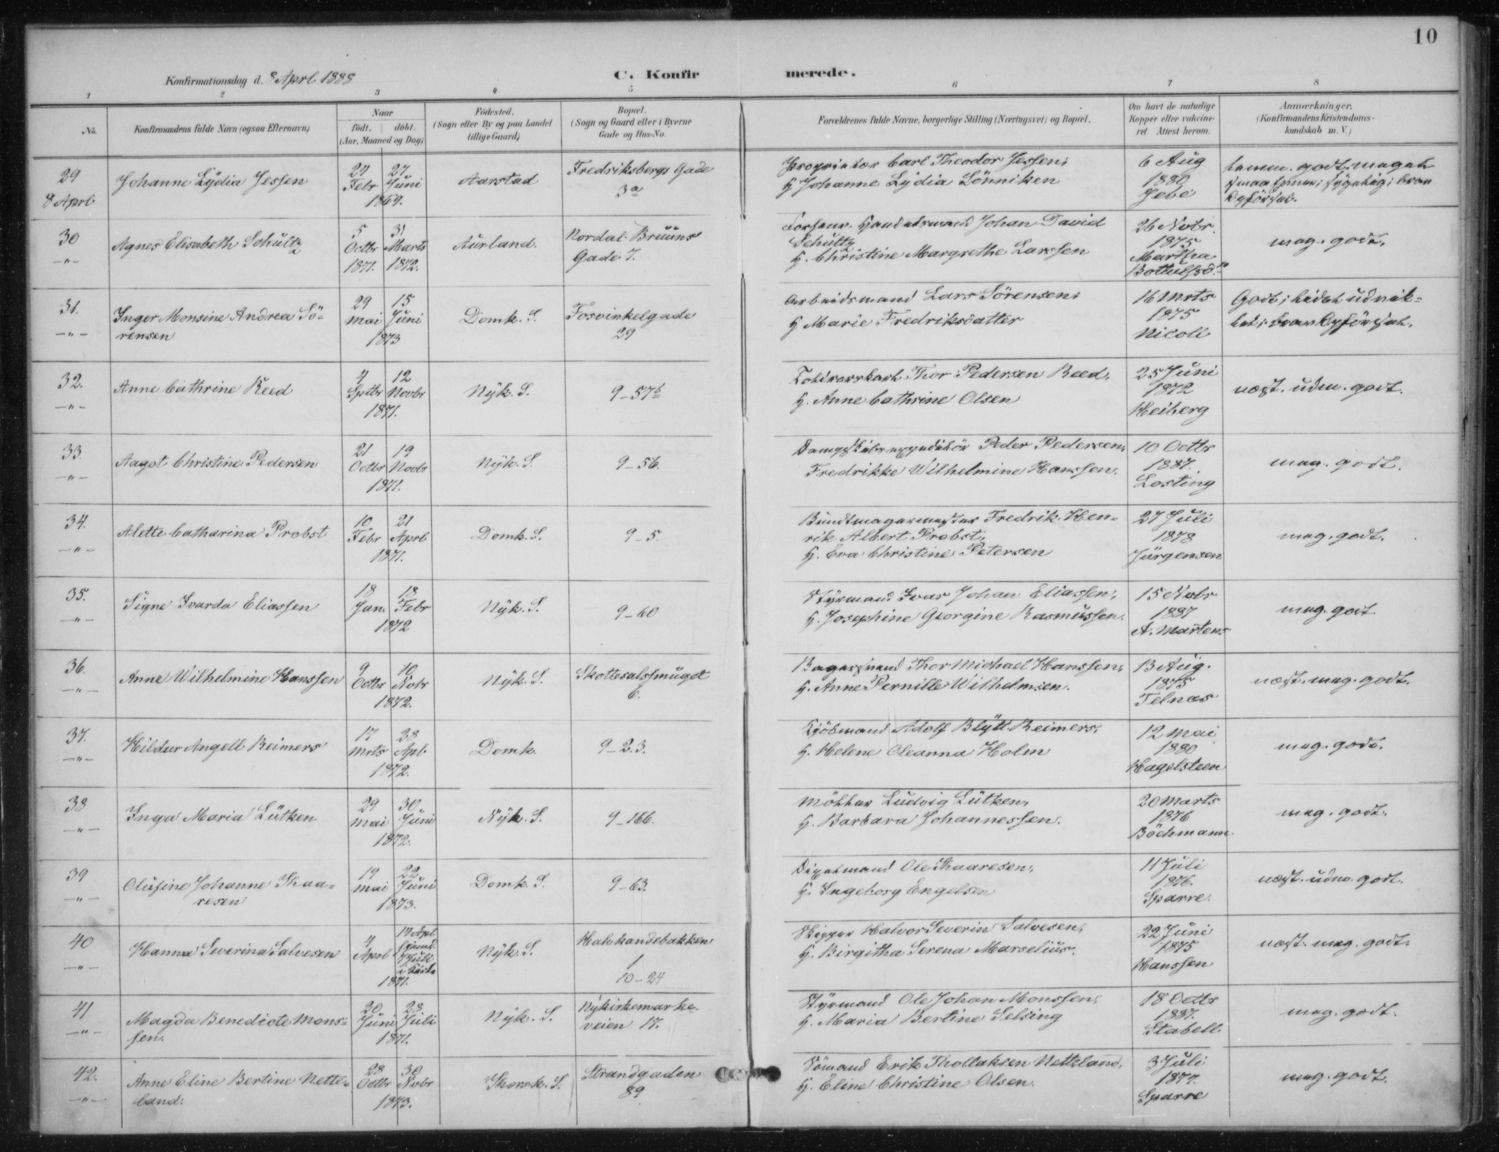 10
Konfirmationsdag d. 8 Aprl 1888
C. Konfirmerede.
1 2 3 4 5 6 7 8
No.
Konfirmandens fulde Navn (ogsaa Efternavn)
Naar
født. døbt.
(Aar, Maaned og Dag)
Fødested.
(Sogn eller By og paa Landet
tillige Gaard)
Bopæl.
(Sogn og Gaard eller i Byerne
Gade og Hus-No.
Forældrenes fulde Navne, borgerlige Stilling (Næringsvei) og Bopæl.
Om havt de naturlige
Kopper eller vakcine-
ret Attest herom.
Anmærkninger.
(Konfirmandens Kristendoms-
kundskab m. V.)
29
8 Aprl
Johanne Lydia Jessen
27 Febr 27 Juni
1869.
Aarstad
Fredriksbergs Gade
3a
Proprietær Carl Theodor Jessen,
H. Johanne Lydia Lönniken
6 Aug
1880
Jebe
30
-"-
Agnes Elisabeth Schültz
5 Octbr 1871. 31 Marts 1872.
Aurland.
Nordal Bruuns
Gade 7.
Johan David
Schültz
H. Christine Margrethe Larssen
26 Novbr.
1875
Martha
mag. godt.
31.
-"-
Inger Monsine Andrea Sö-
rensen
29 mai 15 Juni
1873
Domk. S.
Fosvinkelgade
29
Arbeidsmand Lars Sörensen,
H. Marie Fredriksdatter
16 Mrts
1875
Nicoll
32.
-"-
Anne Cathrine Reed
4 Septbr 12 Novbr
1871.
Nyk. S.
9-57b
Thor Pedersen Reed,
H. Anne Cathrine Olsen
25 Juni
1872
Heiberg
næst. udm. godt.
33.
-"-
Aagot Christine Pedersen
21 Octbr 19 Novbr
1871.
Nyk. S.
9-56.
Peder Pedersen,
Fredrikke Wilhelmine Hanssen.
10 Octbr
1887.
Losting
mag. godt.
34.
-"-
Alette Catharina Probst
10 Febr 21 Aprl
1871.
Domk. S.
9-5
Bundtmagermester Fredrik Hen-
rik Albert Probst,
H. Eva Christine Petersen
27 Juli
1878
Jürgensen
mag. godt.
35.
-"-
Signe Ivarda Eliassen
13 Jan. 13 Febr
1872
Nyk. S.
9-60
Styrmand Ivar Johan Eliassen,
H. Josephine Georgine Rasmüssen.
15 Novbr
1887
A. Martens
mag. godt
36.
-"-
Anne Wilhelmine Hanssen
9 Octbr 10 Novbr
1872.
Nyk. S.
Skottesalssmuget
6.
Thor Michael Hanssen,
H. Anne Pernille Wilhelmsen.
13 Aug.
1875
Telnæs
næst. mag. godt.
37.
-"-
Hildur Angell Reimers
17 Mrts 23 Apl.
1872.
Domk.
9-23.
Kjöbmand Adolf Blytt Reimers,
H. Helene Oleanna Holm
12 mai
1880
Hagelsteen
mag. godt.
38
-"-
Inga Maria Lütken
29 mai 30. Juni
1872.
Nyk. S.
9-166.
Möller Ludvig Lütken,
H. Barbara Johannessen.
20 Marts
1876
Böchmann
mag. godt.
39
-"-
Olufine Johanne Skaa-
resen
19 mai 22 Juni
1873.
Domk. S.
9-63.
Ole Skaaresen,
H. Ingeborg Engelsen
11 Juli
1876.
Sparre.
næst. udm. godt.
40
-"-
Hanna Severina Salvesen
4 Aprl 17 Apl
1871.
Nyk. S.
1
10-24
Skipper Halvor Severin Salvesen,
H. Birgitha Serena Marselius.
22 Juni
1875
Hanssen
næst. mag. godt.
41
-"-
Magda Benedicte Mons-
sen.
20. Juni 23. Juli
1871.
Nyk. S.
Nykirkemarke-
veien 17.
Styrmand Ole Johan Monssen,
H. Maria Bertine Selsing
18 Octbr
1887.
Stabell
mag. godt.
42.
-"-
Anne Eline Bertine Nette-
land.
23 Octbr 30 Novbr
1873.
Strandgaden
89
Sömand Erik Tholtaksen Netteland,
H. Eline Christine Olsen.
3 Juli
1877.
Sparre
mag. godt.